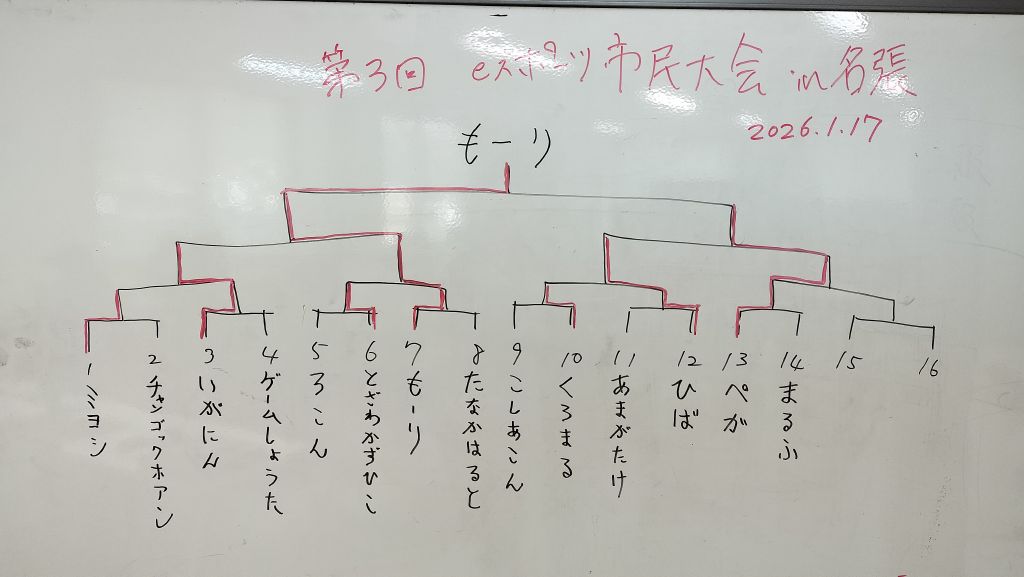 第3回 eスポーツ市民大会 in 名張
2026.1.17
もーり
1 ミヨシ
2 チャンゴックホアン
3 いがにん
4 ゲームしょうた
5 ろこん
6 とざわかずひこ
7 もーり
8 たなかはると
9 こしあこん
10 くろまる
11 あまがたけ
12 ひば
13 ぺが
14 まるふ
15
16